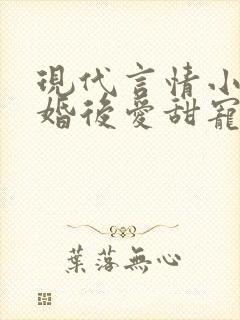 現代言情小
婚後愛甜寵
葉落無心